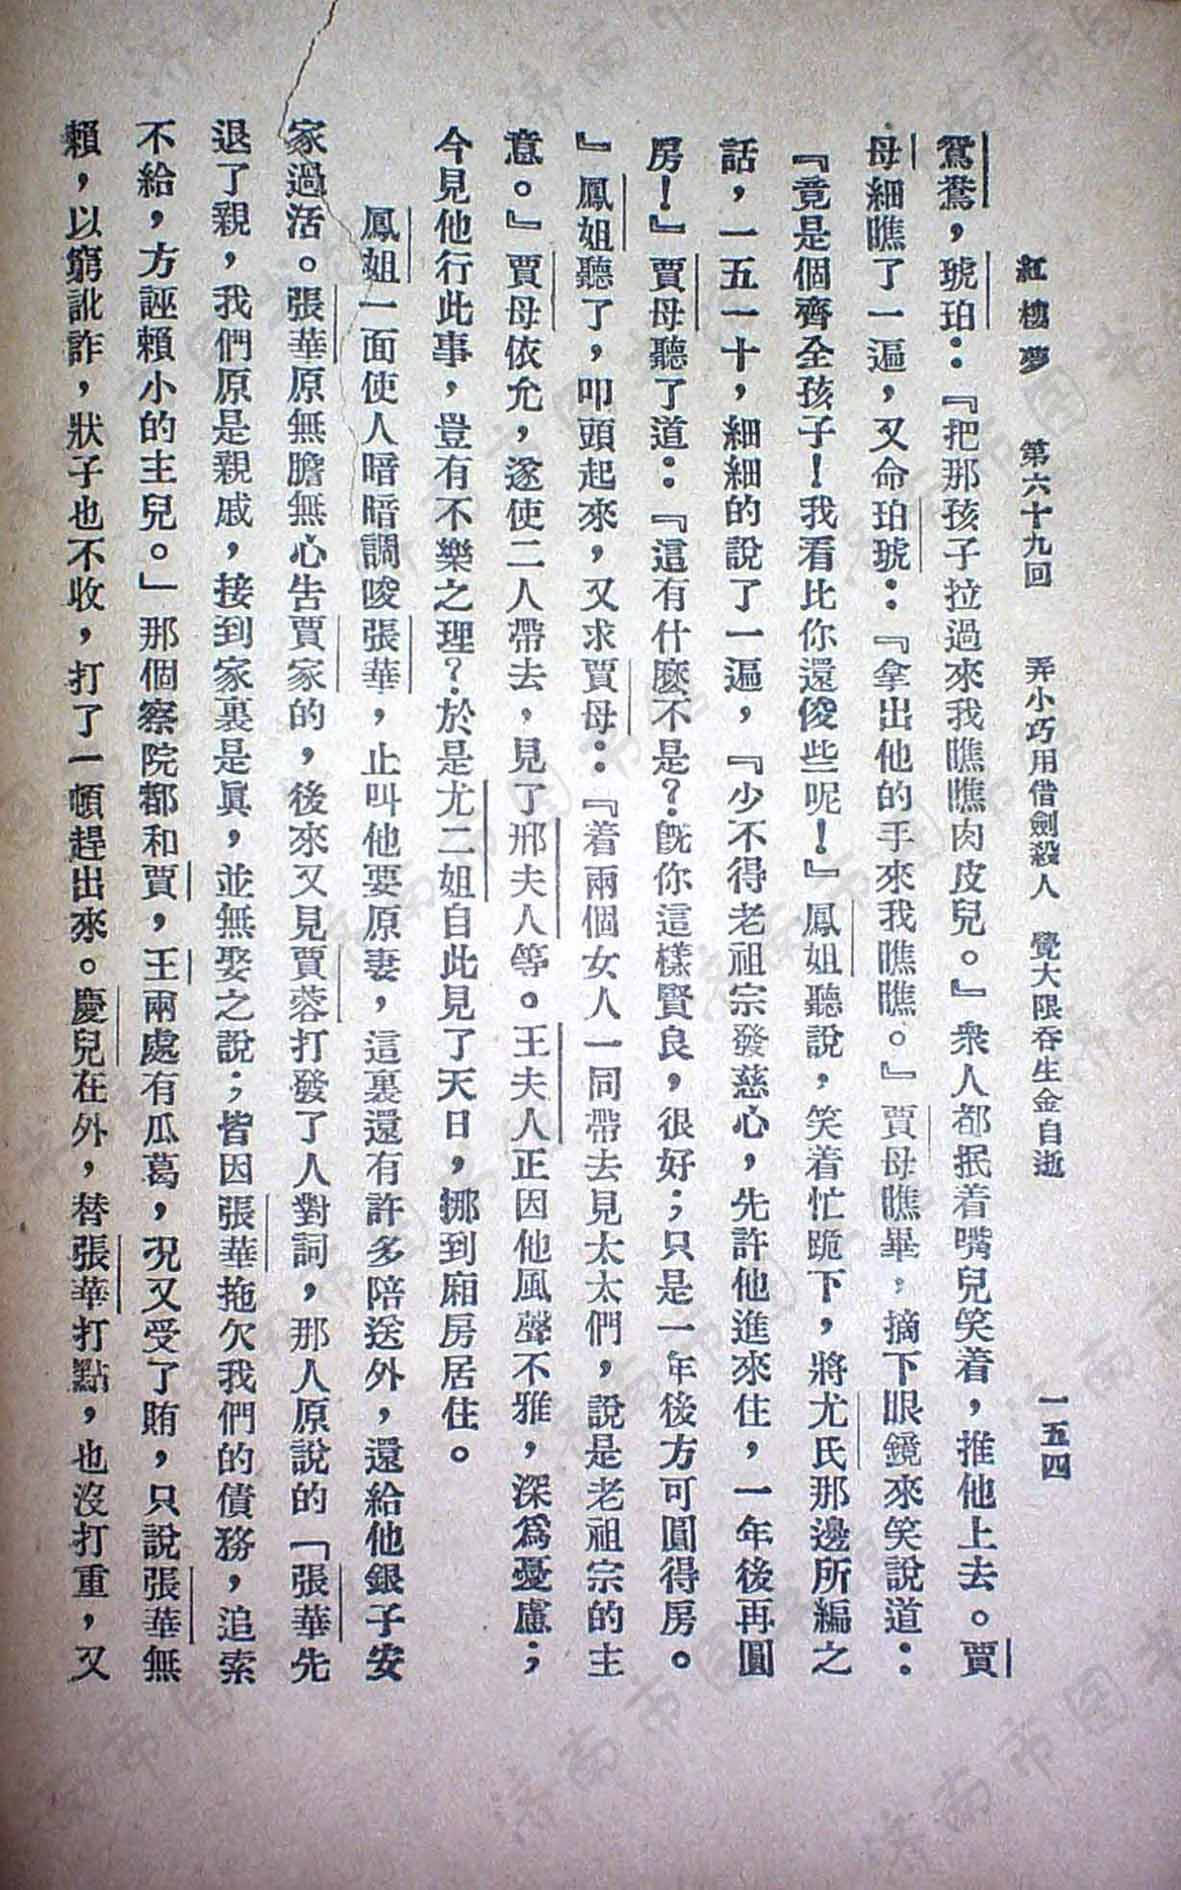 紅樓夢　第六十九回　弄小巧用借劍殺人　覺大限吞生金自逝　一五四
鴛鴦，琥珀：『把那孩子拉過來我瞧瞧肉皮兒。』衆人都抿着嘴兒笑着，推他上去。賈
母細瞧了一遍，又命珀琥：『拿出他的手來我瞧瞧。』賈母瞧畢，摘下眼鏡來笑說道：
『竟是個齊全孩子！我看比你還俊些呢！』鳳姐聽說，笑着忙跪下，將尤氏那邊所編之
話，一五一十，細細的說了一遍，『少不得老祖宗發慈心，先許他進來住，一年後再圓
房！』賈母聽了道：『這有什麽不是？旣你這樣賢良，很好；只是一年後方可圓得房。
』鳳姐聽了，叩頭起來，又求賈母：『着兩個女人一同帶去見太太們，說是老祖宗的主
意。』賈母依允，遂使二人帶去，見了邢夫人等。王夫人正因他風聲不雅，深爲憂慮；
今見他行此事，豈有不樂之理？於是尤二姐自此見了天日，挪到廂房居住。
鳳姐一面使人暗暗調唆張華，止叫他要原妻，這裏還有許多陪送外，還給他銀子安
家過活。張華原無膽無心告賈家的，後來又見賈蓉打發了人對詞，那人原說的「張華先
退了親，我們原是親戚，接到家裏是眞，並無娶之說；皆因張華拖欠我們的債務，追索
不給，方誣賴小的主兒。」那個察院都和賈，王兩處有瓜葛，况又受了賄，只說張華無
賴，以窮訛詐，狀子也不收，打了一頓趕出來。慶兒在外，替張華打點，也沒打重，又
濟南市图书馆